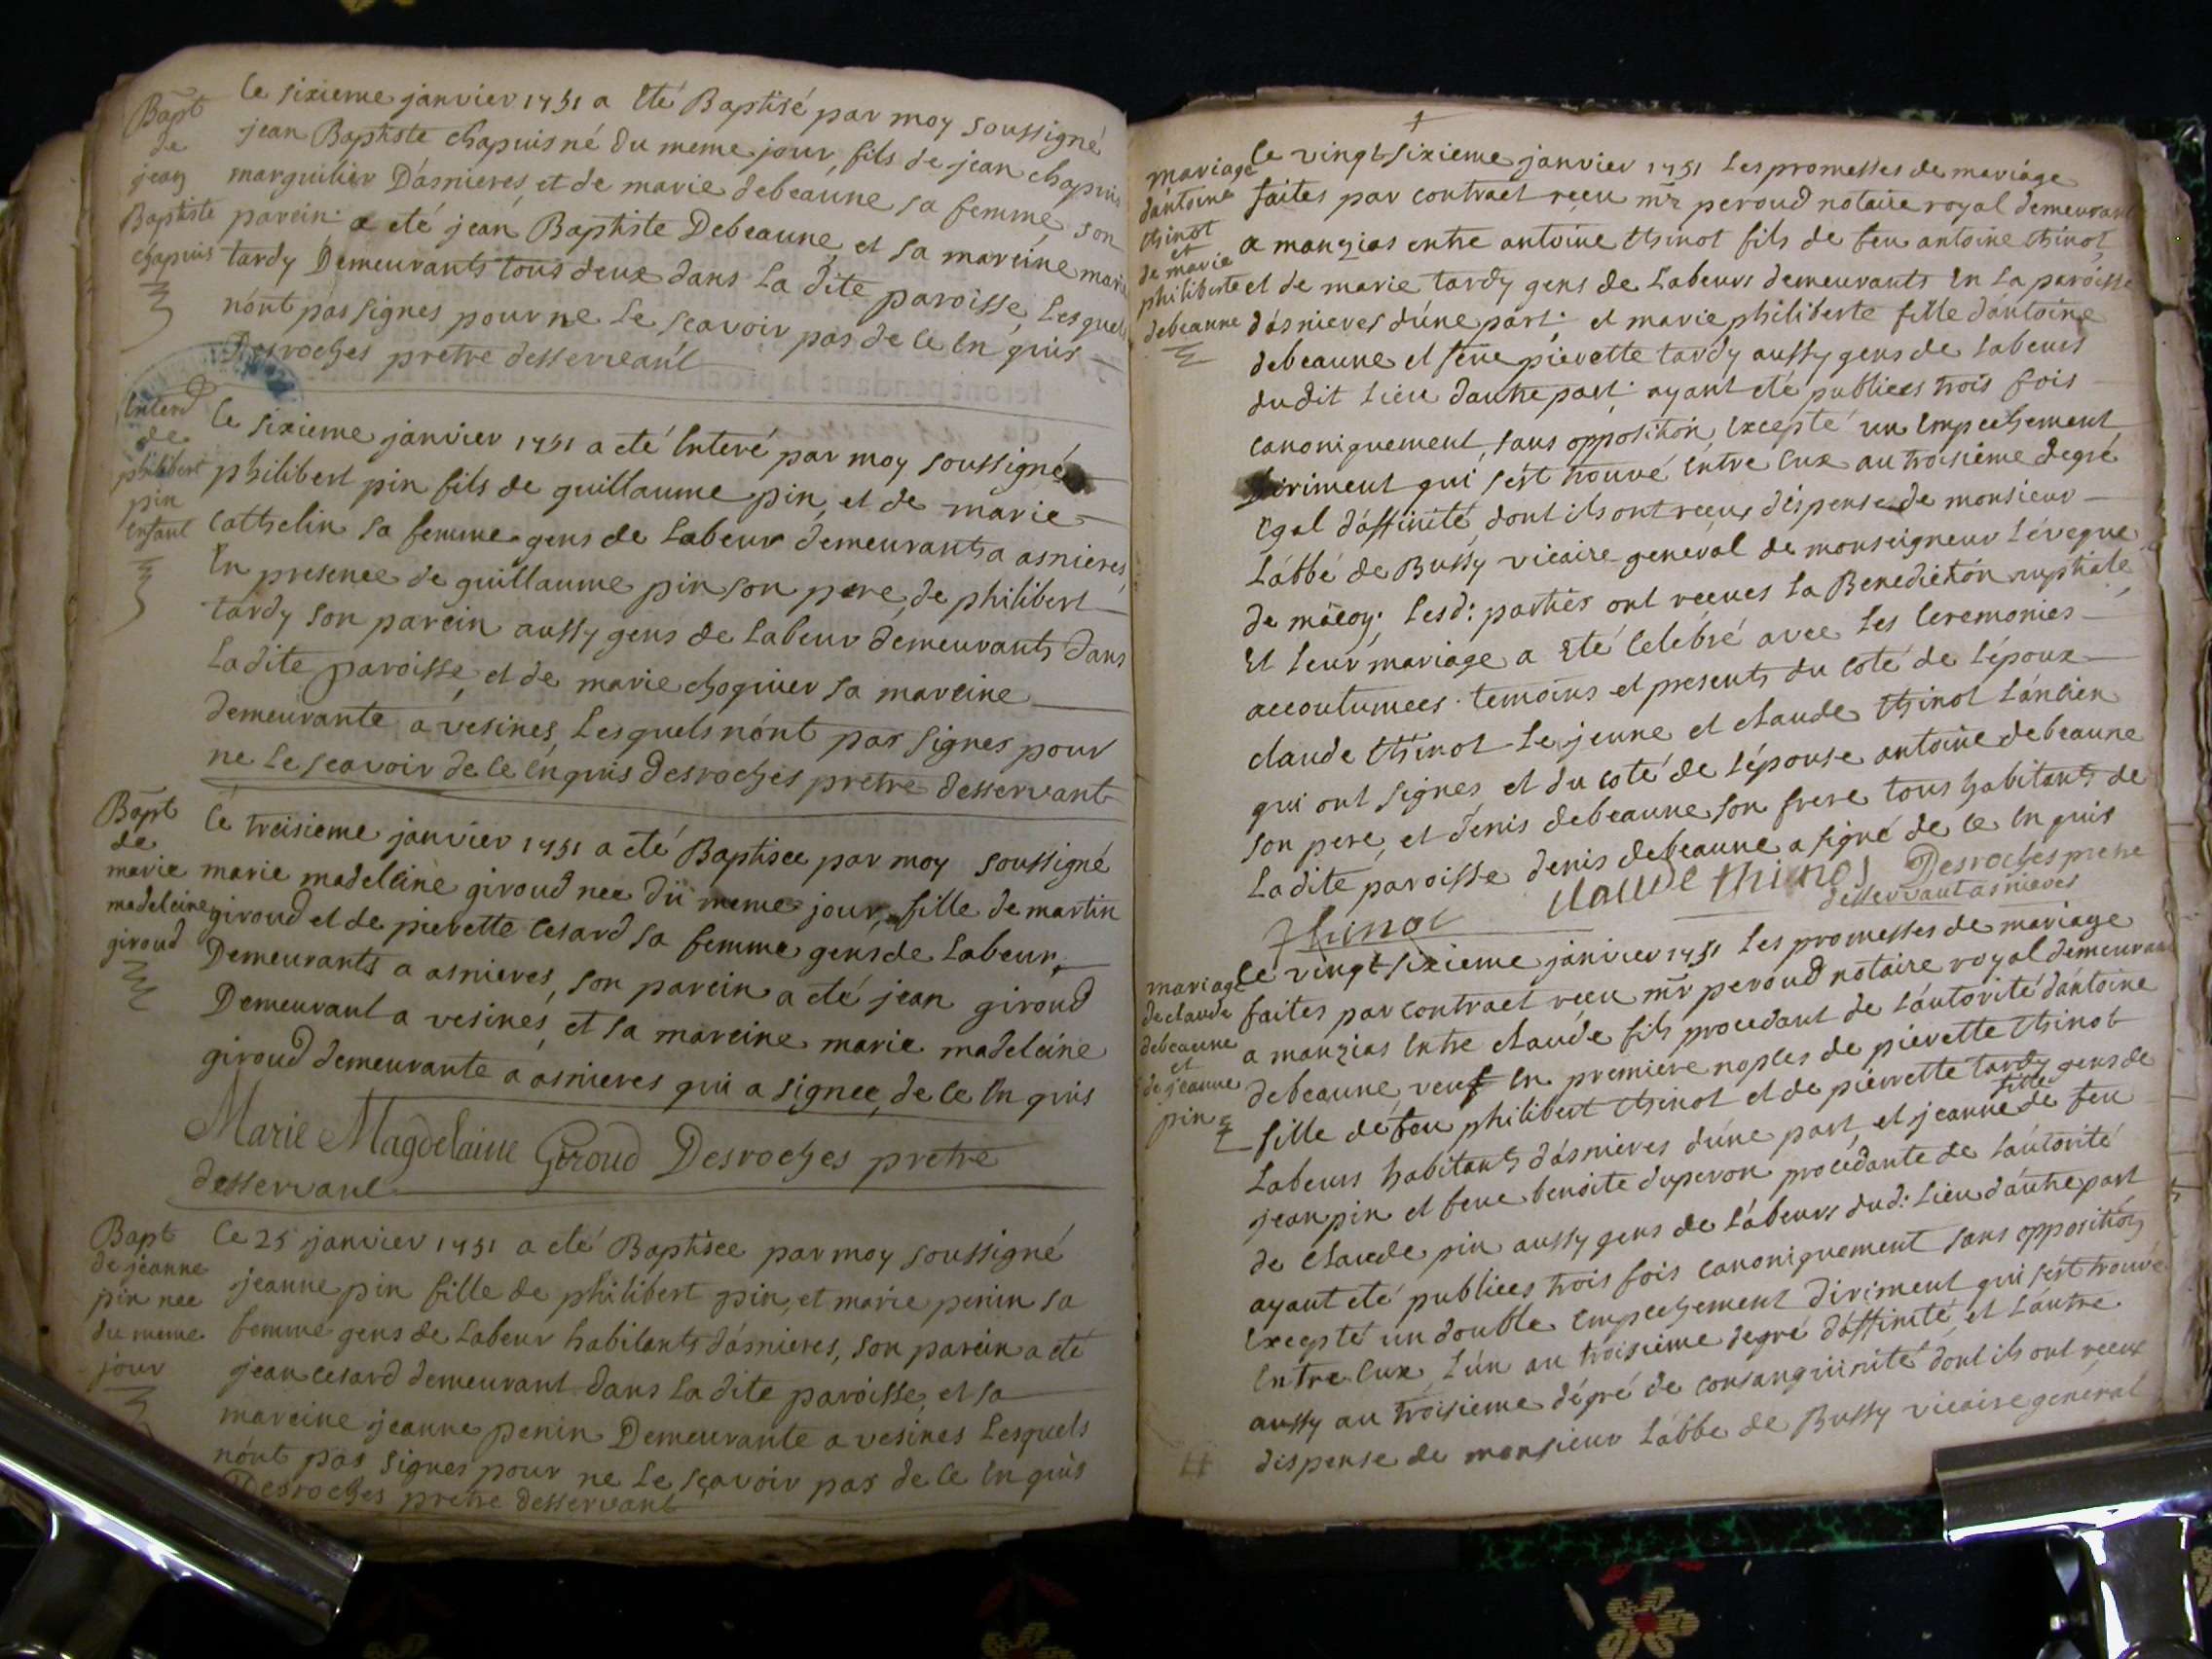 Bapt
de
jean
Baptiste
chapuis
le sixieme janvier 1751 a eté Baptisé par moy soussigné
jean Baptiste chapuis né du meme jour, fils de jean chapuis
marguilier D'asnieres, et de marie debeaune sa femme, son
parein a eté jean Baptiste Debeaune, et sa mareine marie
tardy Demeurants tous deux dans la dite paroisse, lesquels
n'ont pas signes pour ne le sçavoir pas de ce enquis
Desroches pretre desserveant
Enterd
de
philibert
pin
enfant
le sixieme janvier 1751 a eté Enteré par moy soussigné
philibert pin fils de guillaume pin, et de marie
cathelin sa femme gens de Labeur demeurants a asnieres,
En presence de guillaume pin son pere, de philibert
tardy son parein aussy gens de Labeur demeurants dans
Ladite paroisse, et de marie choquier sa mareine
demeurante a vesines, Lesquels n'ont pas signes pour
ne le sçavoir de ce enquis Desroches pretre desservant
Bapt
de
marie
madeleine
giroud
le treisieme janvier 1751 a eté Baptisee par moy soussigné
marie madeleine giroud nee du meme jour, fille de martin
giroud et de pierette cesard sa femme gens de Labeur,
Demeurants a asnieres, son parein a eté jean giroud
Demeurant a vesines, et sa mareine marie madeleine
giroud demeurante a asnieres qui a signee, de ce enquis
Marie Magdelaine Giroud Desroches pretre
desservant
Bapt
de jeanne
pin nee
du meme
jour
le 25 janvier 1751 a eté Baptisee par moy soussigné
jeanne pin fille de philibert pin, et marie penin sa
femme gens de Labeur habitants d'asnieres, son parein a eté
jean cesard demeurant dans la dite paroisse, et sa
mareine jeanne penin Demeurante a vesines Lesquels
n'ont pas signes pour ne le sçavoir pas de ce enquis
Desroches pretre desservant
mariage
d'antoine
thinot
et
de marie
philiberte
debeaune
le vingt sixieme janvier 1751 Les promesses de mariage
faites par contract reçu mr peroud notaire royal demeurant
a manzias entre antoine thinot fils de feu antoine thinot,
et de marie tardy gens de Labeurs demeurants en la paroisse
d'asnieres d'une part. et marie philiberte fille d'antoine
debeaune et feüe pierette tardy aussy gens de Labeurs
dudit Lieu d'autre part. ayant eté publiees trois fois
canoniquement, sans opposition, excepté un Empechement
diriment qui s'est trouvé entre eux au troisieme degré
Egal d'affinité, dont ils ont reçeus dispense de monsieur
L'abbé de Bussy vicaire general de monseigneur L'éveque
de mâcon. Lesd: parties ont reçues la Benediction nuptiale
Et leur mariage a eté Celebré avec les Ceremonies
accoutumees. temoins et presents du coté de L'époux
claude thinot le jeune et claude thinot L'ancien
qui ont signes, et du coté de L'épouse antoine debeaune
son pere, et denis debeaune son frere tous habitants de
Ladite paroisse denis debeaune a signé de ce enquis
thinot claude thinot Desroches pretre
desservant asnieres
mariage
de claude
debeaune
et
de jeanne
pin
le vingt sixieme janvier 1751 Les promesses de mariage
faites par contract reçu mr peroud notaire royal demeurant
a manzias Entre claude fils procedant de L'autorité d'antoine
debeaune, veuf En premiere nopces de pierette thinot
fille de feu philibert thinot et de pierrette tardy gens de
Labeurs habitants d'asnieres d'une part, et jeanne fille de feu
jean pin et feue benoite duperon procedante de L'autorité
de claude pin aussy gens de Labeurs dud: lieu d'autre part
ayant eté publiees trois fois canoniquement sans opposition
Excepté un double Empechement diriment qui s'est trouvé
Entre Eux, L'un au troisieme degré d'affinité, et L'autre
aussy au troisieme degré de consanguinité dont ils ont reçeux
dispense de monsieur L'abbe de Bussy vicaire general